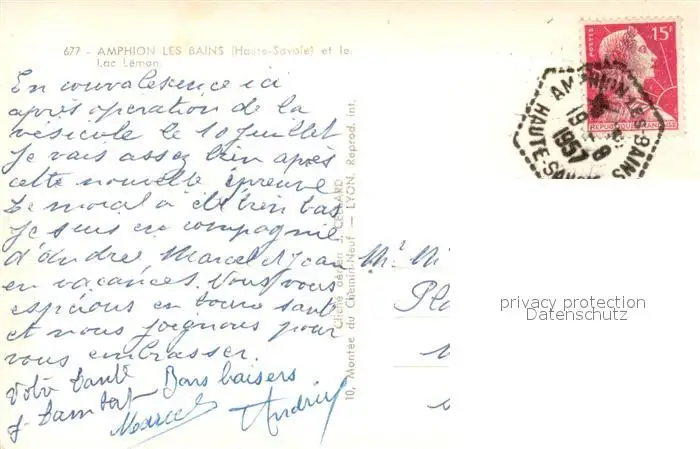 677 - AMPHION LES BAINS (Haute-Savoie) et le
Lac Léman.
En convalescence ici
après opération de la
vésicule le 10 juillet
Je vais assez bien après
cette nouvelle épreuve
Le moral a été très bas
Je suis en compagnie
d'André Marcel et Jean
en vacances. Vous vous
espérons en bonne santé
et nous joignons pour
vous embrasser.
Votre tante Bons baisers
Marcel
10, Montée du Chemin-Neuf — LYON. Reprod. int.
Cliché aérien J. CELLARD
POSTES
15F
REPUBLIQUE FRANÇAISE
AMPHION-LES-BAINS
19
8
1957
HAUTE-SAVOIE
Mr
privacy protection
Datenschutz